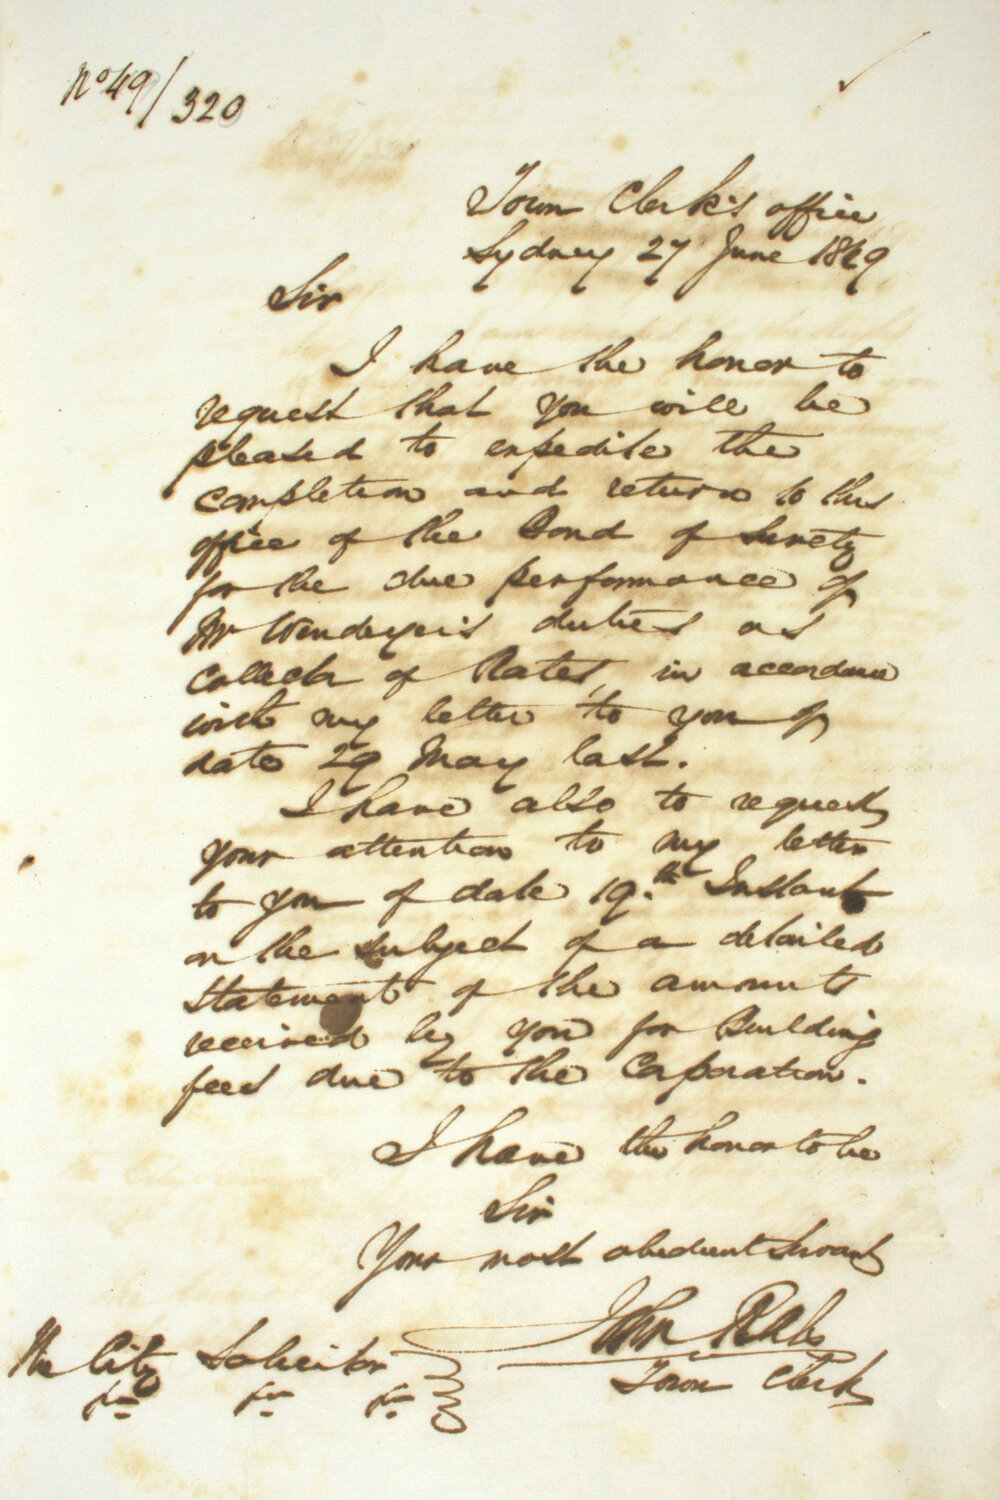 No 49/320
Town Clerk's office
Sydney 27 June 1849
Sir
I have the honor to
request that you will be
pleased to expedite the
completion and return to this
office of the Bond of Surety
for the due performance of
Mr Wendeyer's duties as
Collector of Rates, in accordance
with my letter to you of
date 29 May last.
I have also to request
your attention to my letter
to you of date 19.th Instant
on the subject of a detailed
statement of the amounts
received by you for Building
fees due to the Corporation.
I have the honor to be
Sir
Your most obedient servant
John Rae
Town Clerk
The City Solicitor